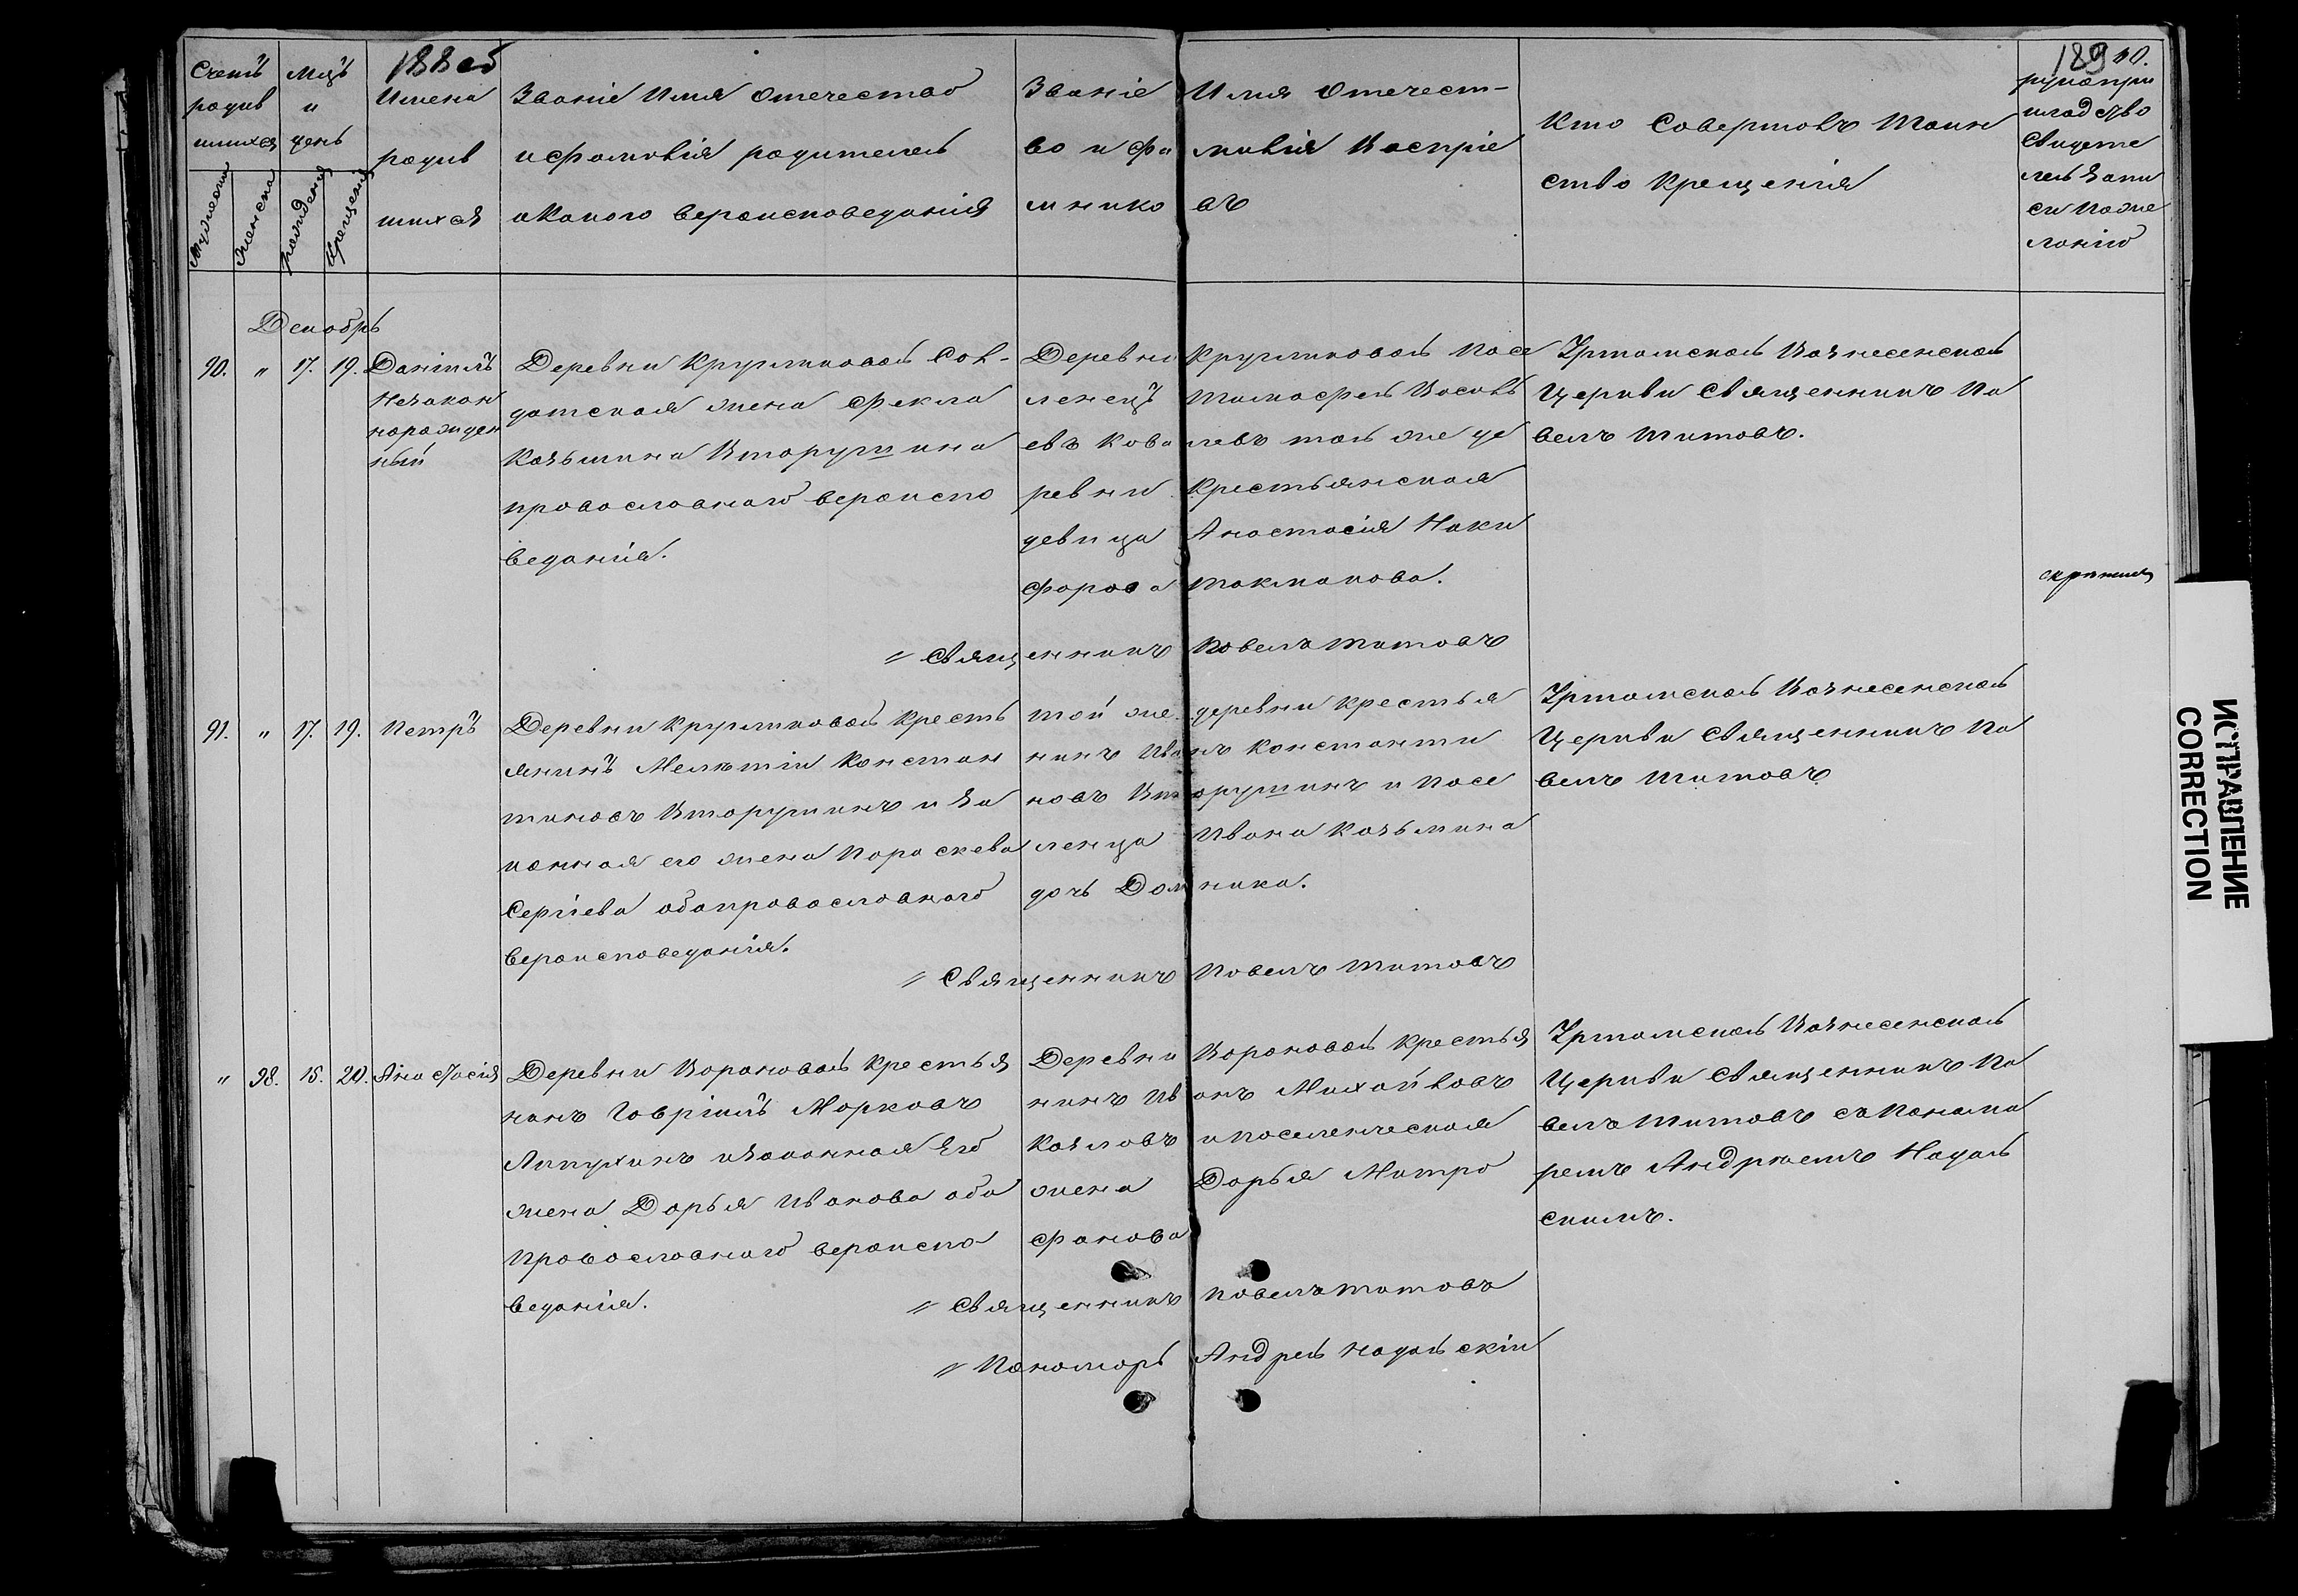 188об
189
40.
Счетъ родив шихся
Мцъ и день
Имена родив шихся
Званіе Имя Отечество
и фамилія родителей
и какого вероисповеданія
Званіе Имя Отечест-
во и фа милія Воспріе
мнико въ
Кто Совершалъ Таин
ство Крещенія
рукопри
кладство
Свидете
лей Запи
си по же
ланію
Мужеска
Женска
рожденія
Крещенія
Декабрь
90. " 17. 19. Даніилъ
Незакон
норожден
ный
Деревни Кругликовой Сол-
датская жена Фекла
Козьмина Вторушина
православнаго вероиспо
веданія.
Деревни Кругликовой Посе
ленецъ Тимофей Васил
евъ Кова левъ той же де
ревни Крестьянская
девица Анастасія Ники
форова Токмакова.
Уртамской Вознесенской
Церкви Священникъ Па
велъ Титовъ.
" Священникъ Павелъ Титовъ
91. " 17. 19. Петръ
Деревни Кругликовой Кресть
янинъ Мелетій Констан
тиновъ Вторушинъ и За
конная его жена Параскева
Сергіева оба православнаго
вероисповеданія.
той же деревни Крестья
нинъ Иванъ Константи
новъ Вторушинъ и Посе
ленца Ивана Козьмина
дочь Домника.
Уртамской Вознесенской
Церкви Священникъ Па
велъ Титовъ
" Священникъ Павелъ Титовъ
" 98. 15. 20. Анастасія
Деревни Вороновой Крестья
нинъ Гавріилъ Марковъ
Лапухинъ и Законная Его
жена Дарья Иванова оба
Православнаго вероиспо
веданія.
Деревни Вороновой Крестья
нинъ Иванъ Михайловъ
Козловъ и поселенческая
жена Дарья Митро
фанова
Уртамской Вознесенской
Церкви Священникъ Па
велъ Титовъ съ Понома
ремъ Андреемъ Надаль
скимъ.
" Священникъ Павелъ Титовъ
" Пономарь Андрей Надальскій
ИСПРАВЛЕНИЕ
CORRECTION